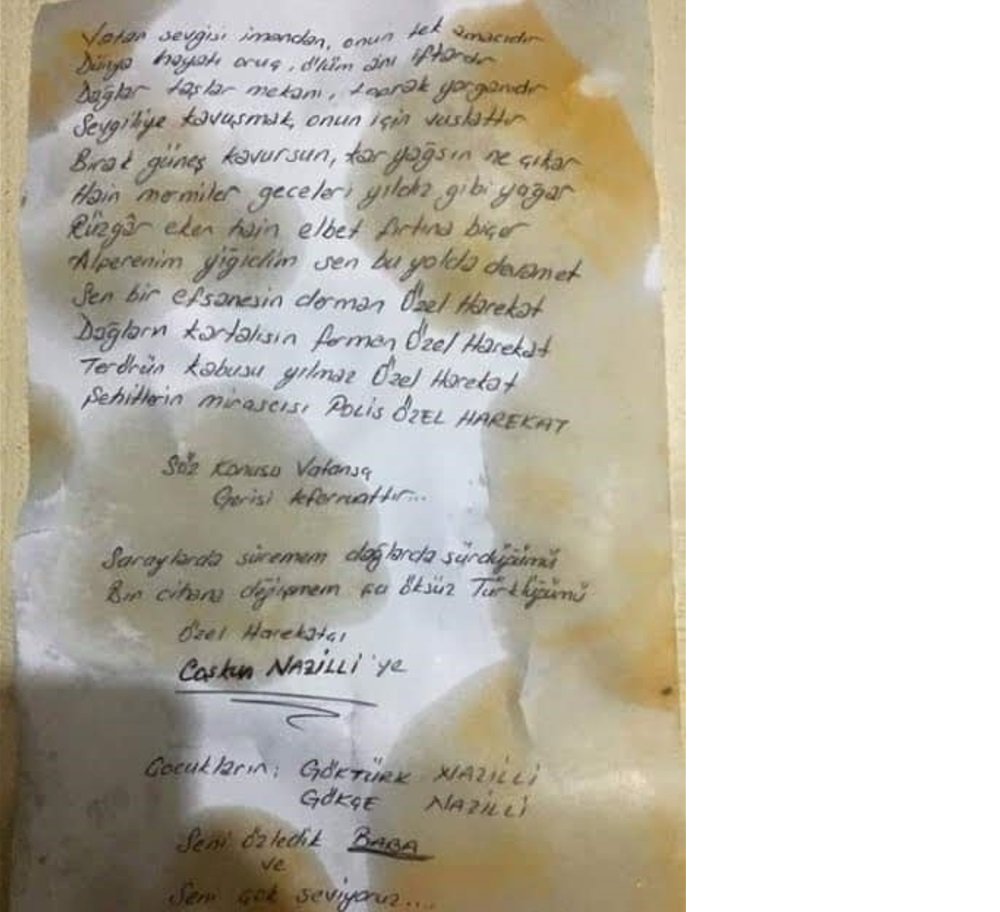 Vatan sevgisi imandan, onun tek amacıdır
Dünya hayatı oruç, ölüm anı iftardır
Dağlar taşlar mekanı, toprak yorganıdır
Sevgiliye kavuşmak, onun için vuslattır
Bırak güneş kavursun, kar yağsın ne çıkar
Hain mermiler geceleri yıldız gibi yağar
Rüzgâr eken hain elbet fırtına biçer
Alperenim yiğidim sen bu yolda devam et
Sen bir efsanesin derman Özel Harekat
Dağların kartalısın ferman Özel Harekat
Terörün kabusu yılmaz Özel Harekat
Şehitlerin mirasçısı POLİS ÖZEL HAREKAT
Söz konusu Vatansa
Gerisi teferruattır...
Saraylarda süremem dağlarda sürdüğümü
Bin cihana değişmem şu öksüz Türklüğümü
Özel Harekatçı
Coşkun NAZİLLİ'ye
Çocukların; GÖKTÜRK NAZİLLİ
GÖKÇE NAZİLLİ
Seni özledik BABA
ve
Seni çok seviyoruz....